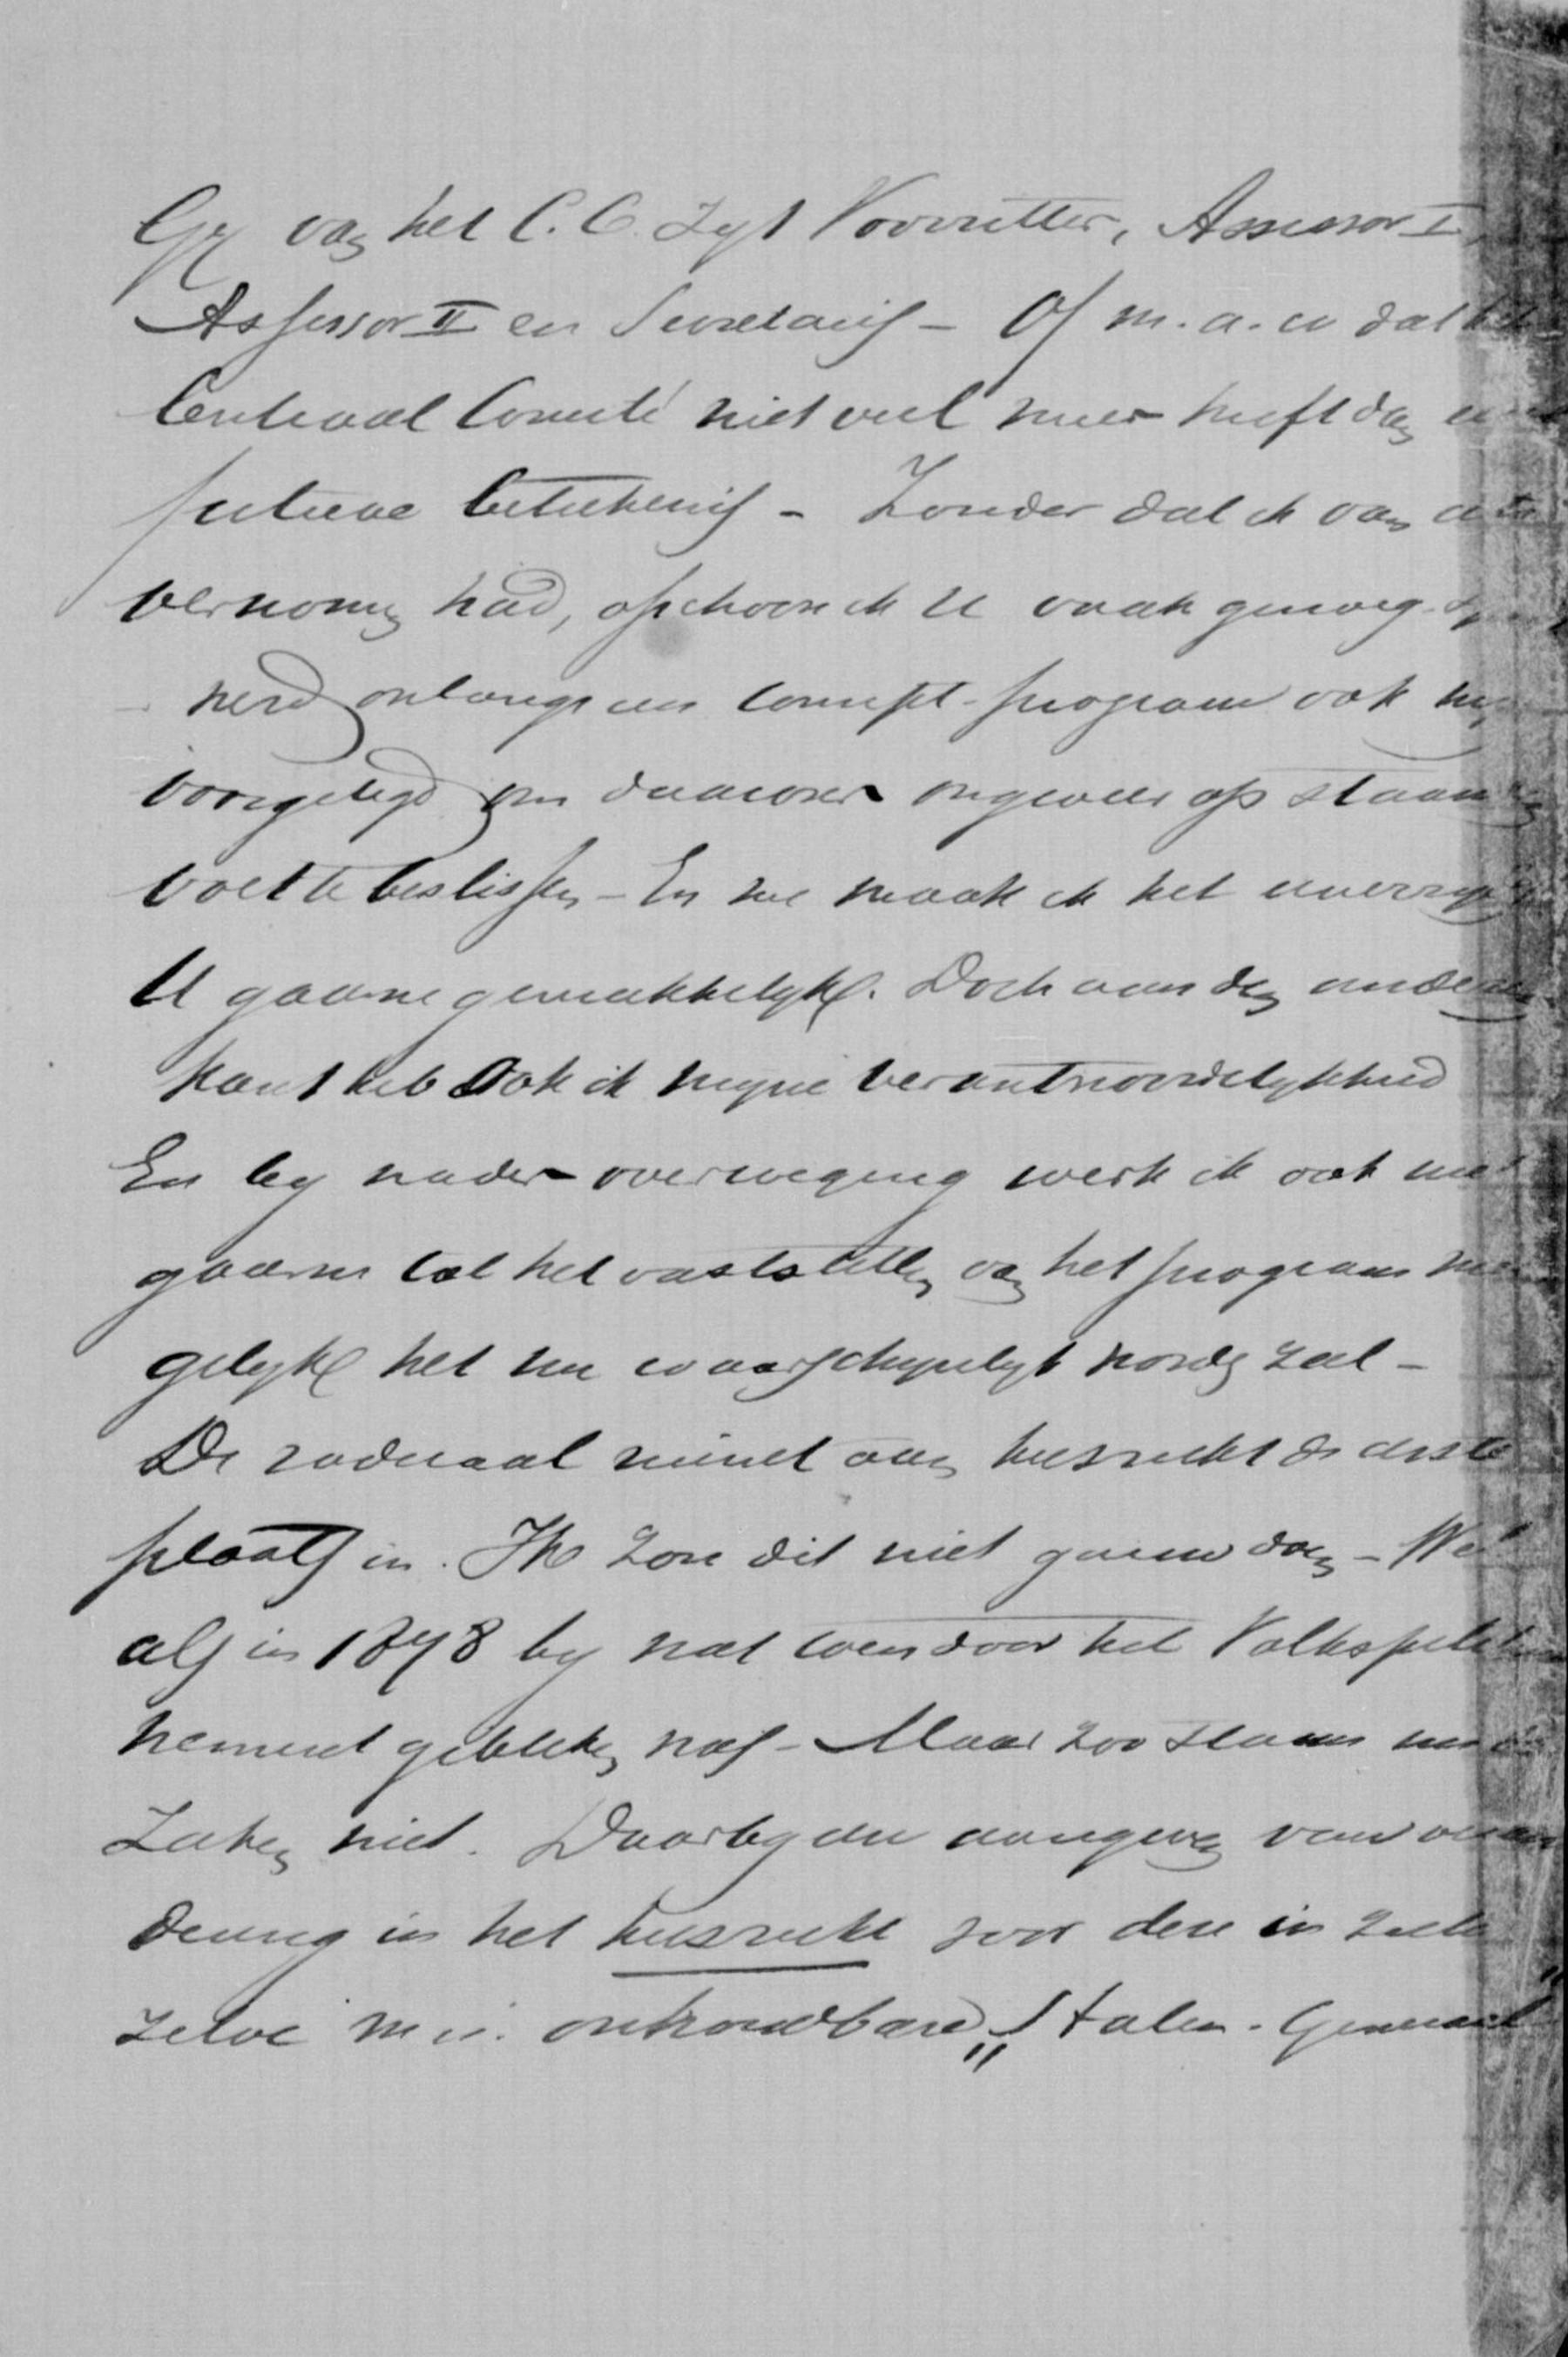 Gy van het C.C. zyt Voorzitter, Assessor I,
Assessor II en Secretaris – Of m.a.w dat het
Centraal Comité niet veel meer heeft dan een
fictieve beteekenis – Zonder dat ik van iets
vernomen had, ofschoon ik U vaak genoeg
werd onlangs een concept-program ook my
voorgelegd om daarover ongeveer op staanden
voet te beslissen – En nu maak ik het
U gaarne gemakkelyk. Doch aan den anderen
kant heb ook ik myne verantwoordelykheid
En by nader overweging werk ik ook niet
gaarne tot het vaststellen van het program mee
gelyk het nu waarschynlyk worden zal –
De radicaal ruimt aan kiesrecht de eerste
plaats in. Ik zou dit niet gaarne doen – Wel
als in 1878 by wat toen door het Volkspetition-
nement gebleken was – Maar zoo staan nu de
Zaken niet. Daarby een aangeven van veran-
dering in het kiesrecht voor deze in zich-
zelve m.i. onhoudbare „Staten-Generaal"